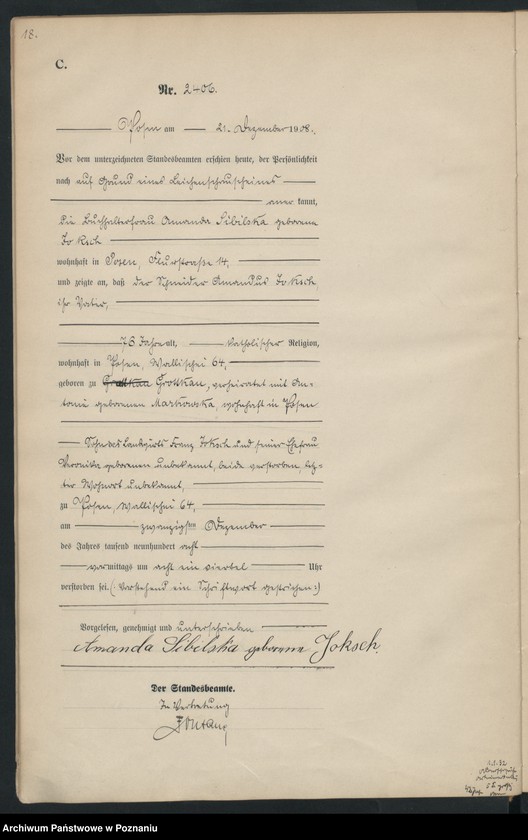 18.
C.
Nr. 2406.
Posen am 21. Dezember 1908.
Vor dem unterzeichneten Standesbeamten erschien heute, der Persönlichkeit
nach auf Grund eines Leichenschauscheines
anerkannt,
die Buchhalterfrau Amanda Sibilska geborene
Joksch
wohnhaft in Posen, Flurstraße 14,
und zeigte an, daß der Schneider Amandus Joksch,
ihr Vater,
76 Jahre alt, katholischer Religion,
wohnhaft in Posen, Wallischei 64,
geboren zu Grottkau Grottkau, verheiratet mit An-
tonie geborenen Markowska, wohnhaft in Posen
Sohn des Landwirts Franz Joksch und seiner Ehefrau
Veronika geborenen unbekannt, beide verstorben, letz-
ter Wohnort unbekannt,
zu Posen, Wallischei 64,
am zwanzigsten Dezember
des Jahres tausend neunhundert acht
vormittags um acht ein viertel Uhr
verstorben sei. (: Vorstehend ein Schriftwort gestrichen :)
Vorgelesen, genehmigt und unterschrieben
Amanda Sibilska geborene Joksch.
Der Standesbeamte.
In Vertretung
Archiwum Państwowe w Poznaniu